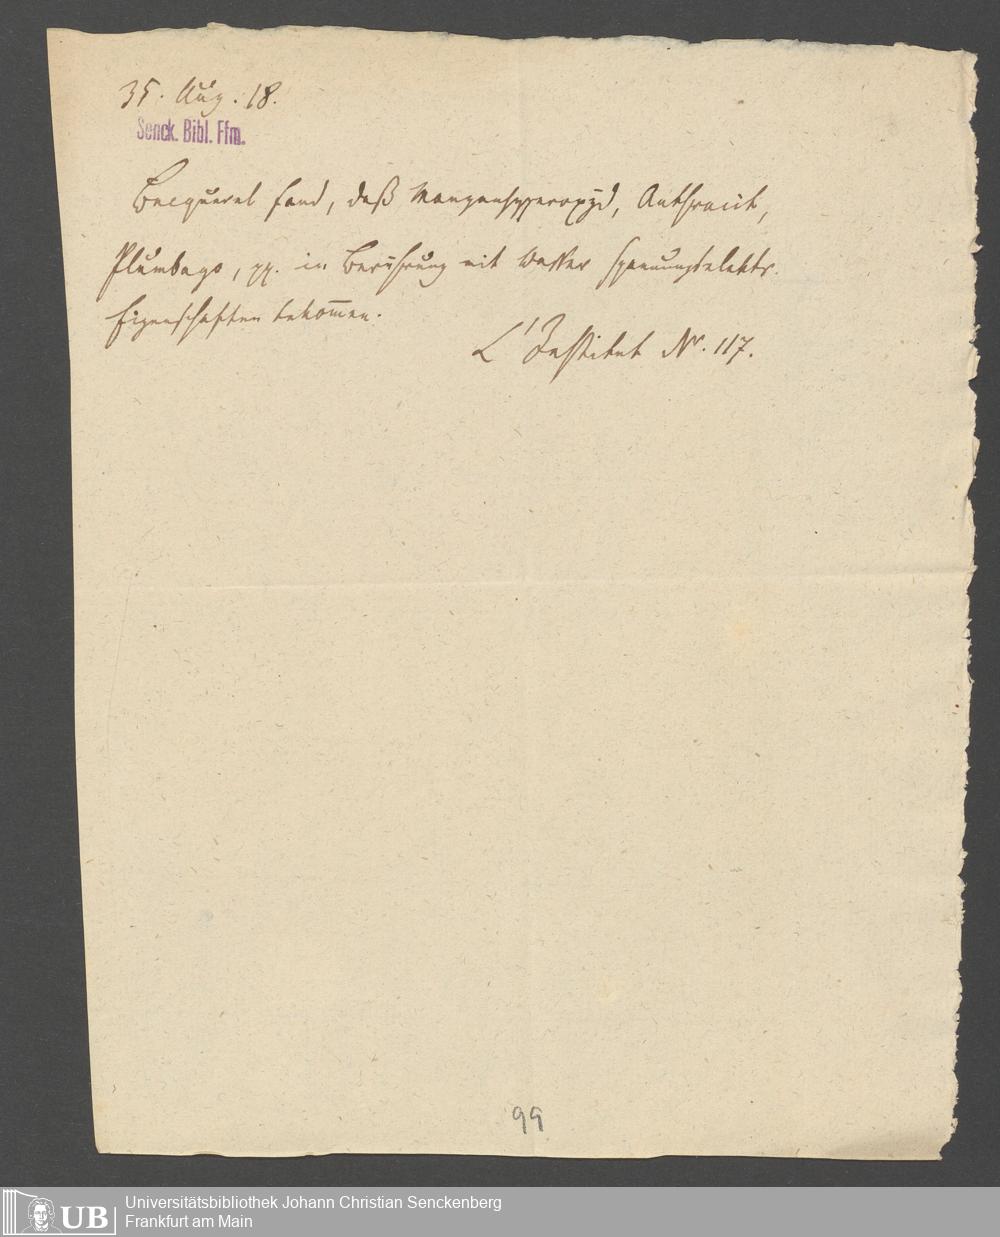 35. Aug. 18.
Senck. Bibl. Ffm.
Becquerel fand, daß Manganhyperoxyd, Anthracit,
Plumbago, pp. in Berührung mit Wasser spannungselektr.
Eigenschaften bekom̅en.
L'Institut Nr. 117.
99
UB
Universitätsbibliothek Johann Christian Senckenberg
Frankfurt am Main